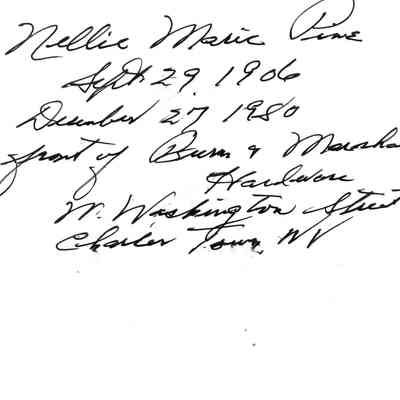 Nellie Marie Pine
Sept 29, 1906
December 27 1980
front of Burns & Marsha
Hardware
W. Washington Street
Charles Town, WV